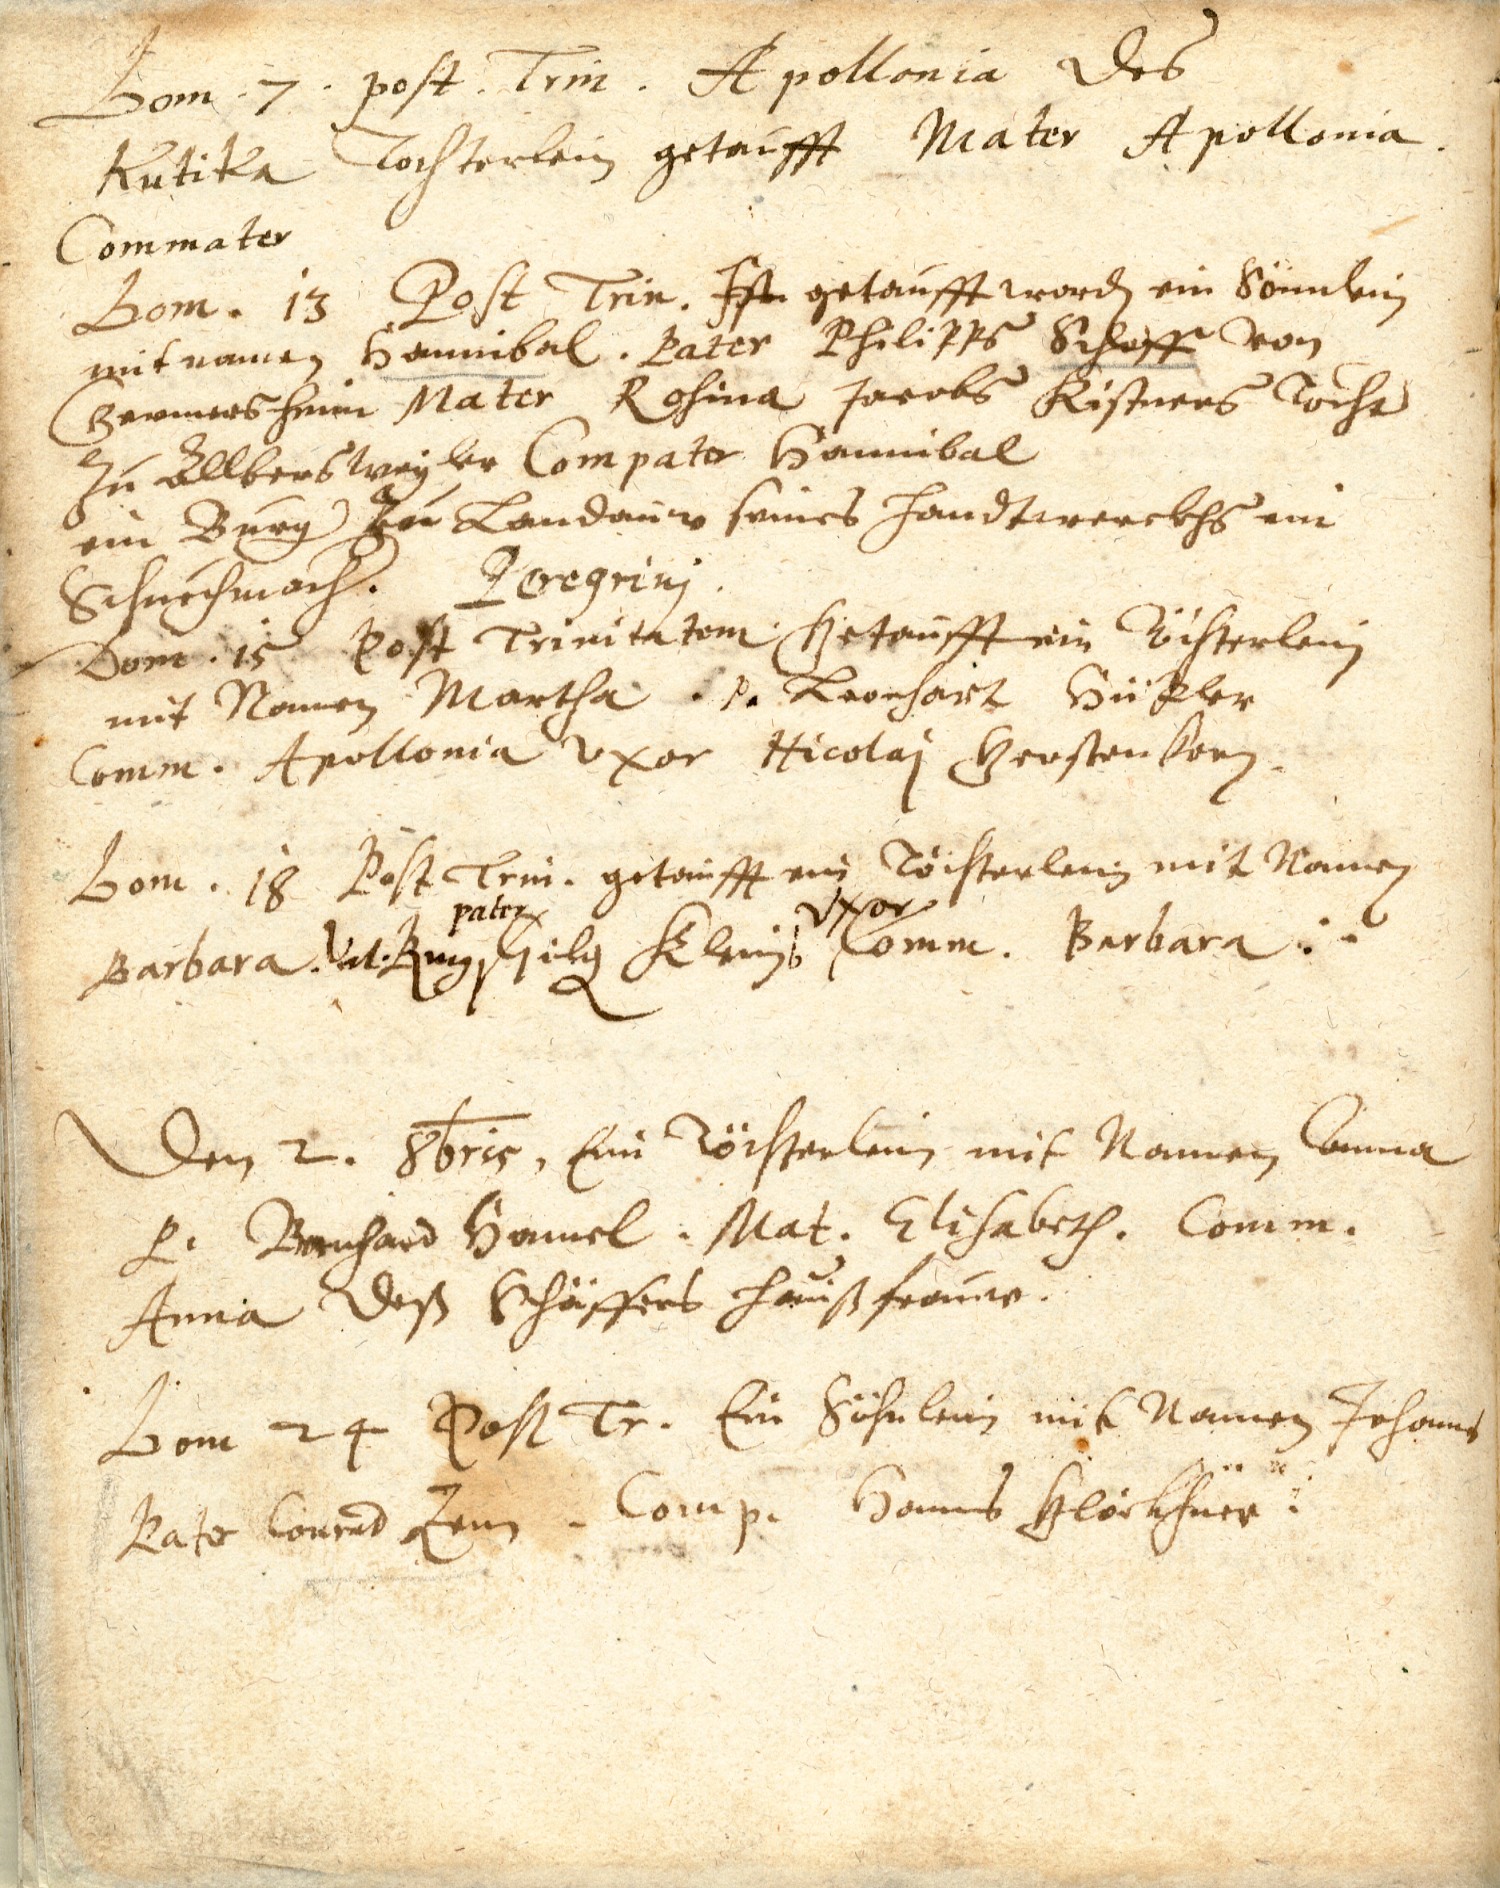 Dom. 7. post. Trin. Apollonia des
Kutika Tochterlein getaufft Mater Apollonia.
Commater
Dom. 13 Post Trin. Ist getaufft word ein Sönnlein
mit namen Hannibal. Pater Philipps Schaff von
Germersheim Mater Rosina Jacobs Kistners Tocht
zu Albersweyler Compater Hannibal
ein Burg zu Landauw seines handtwerckhs ein
Schuchmach. Peregrinj.
Dom. 15 Post Trinitatem. Getaufft ein Töchterlein
mit Namen Martha. P. Leonhart
Comm. Apollonia Vxor Nicolaj Gerstenkorn.
Dom. 18 Post Trin. getaufft ein Töchterlein mit Namen
pater Vxor
Barbara. Gilg Kleins Comm. Barbara
Den 2. 8bris, Ein Töchterlein mit Namen Anna
P. Bernhard Hamel. Mat. Elisabeth. Comm.
Anna deß Schäffers haußfrauw.
Dom 24 Post Tr. Ein Söhnlein mit Namen Johanns
Pater Conrad. Comp. Hanns Glöckhner